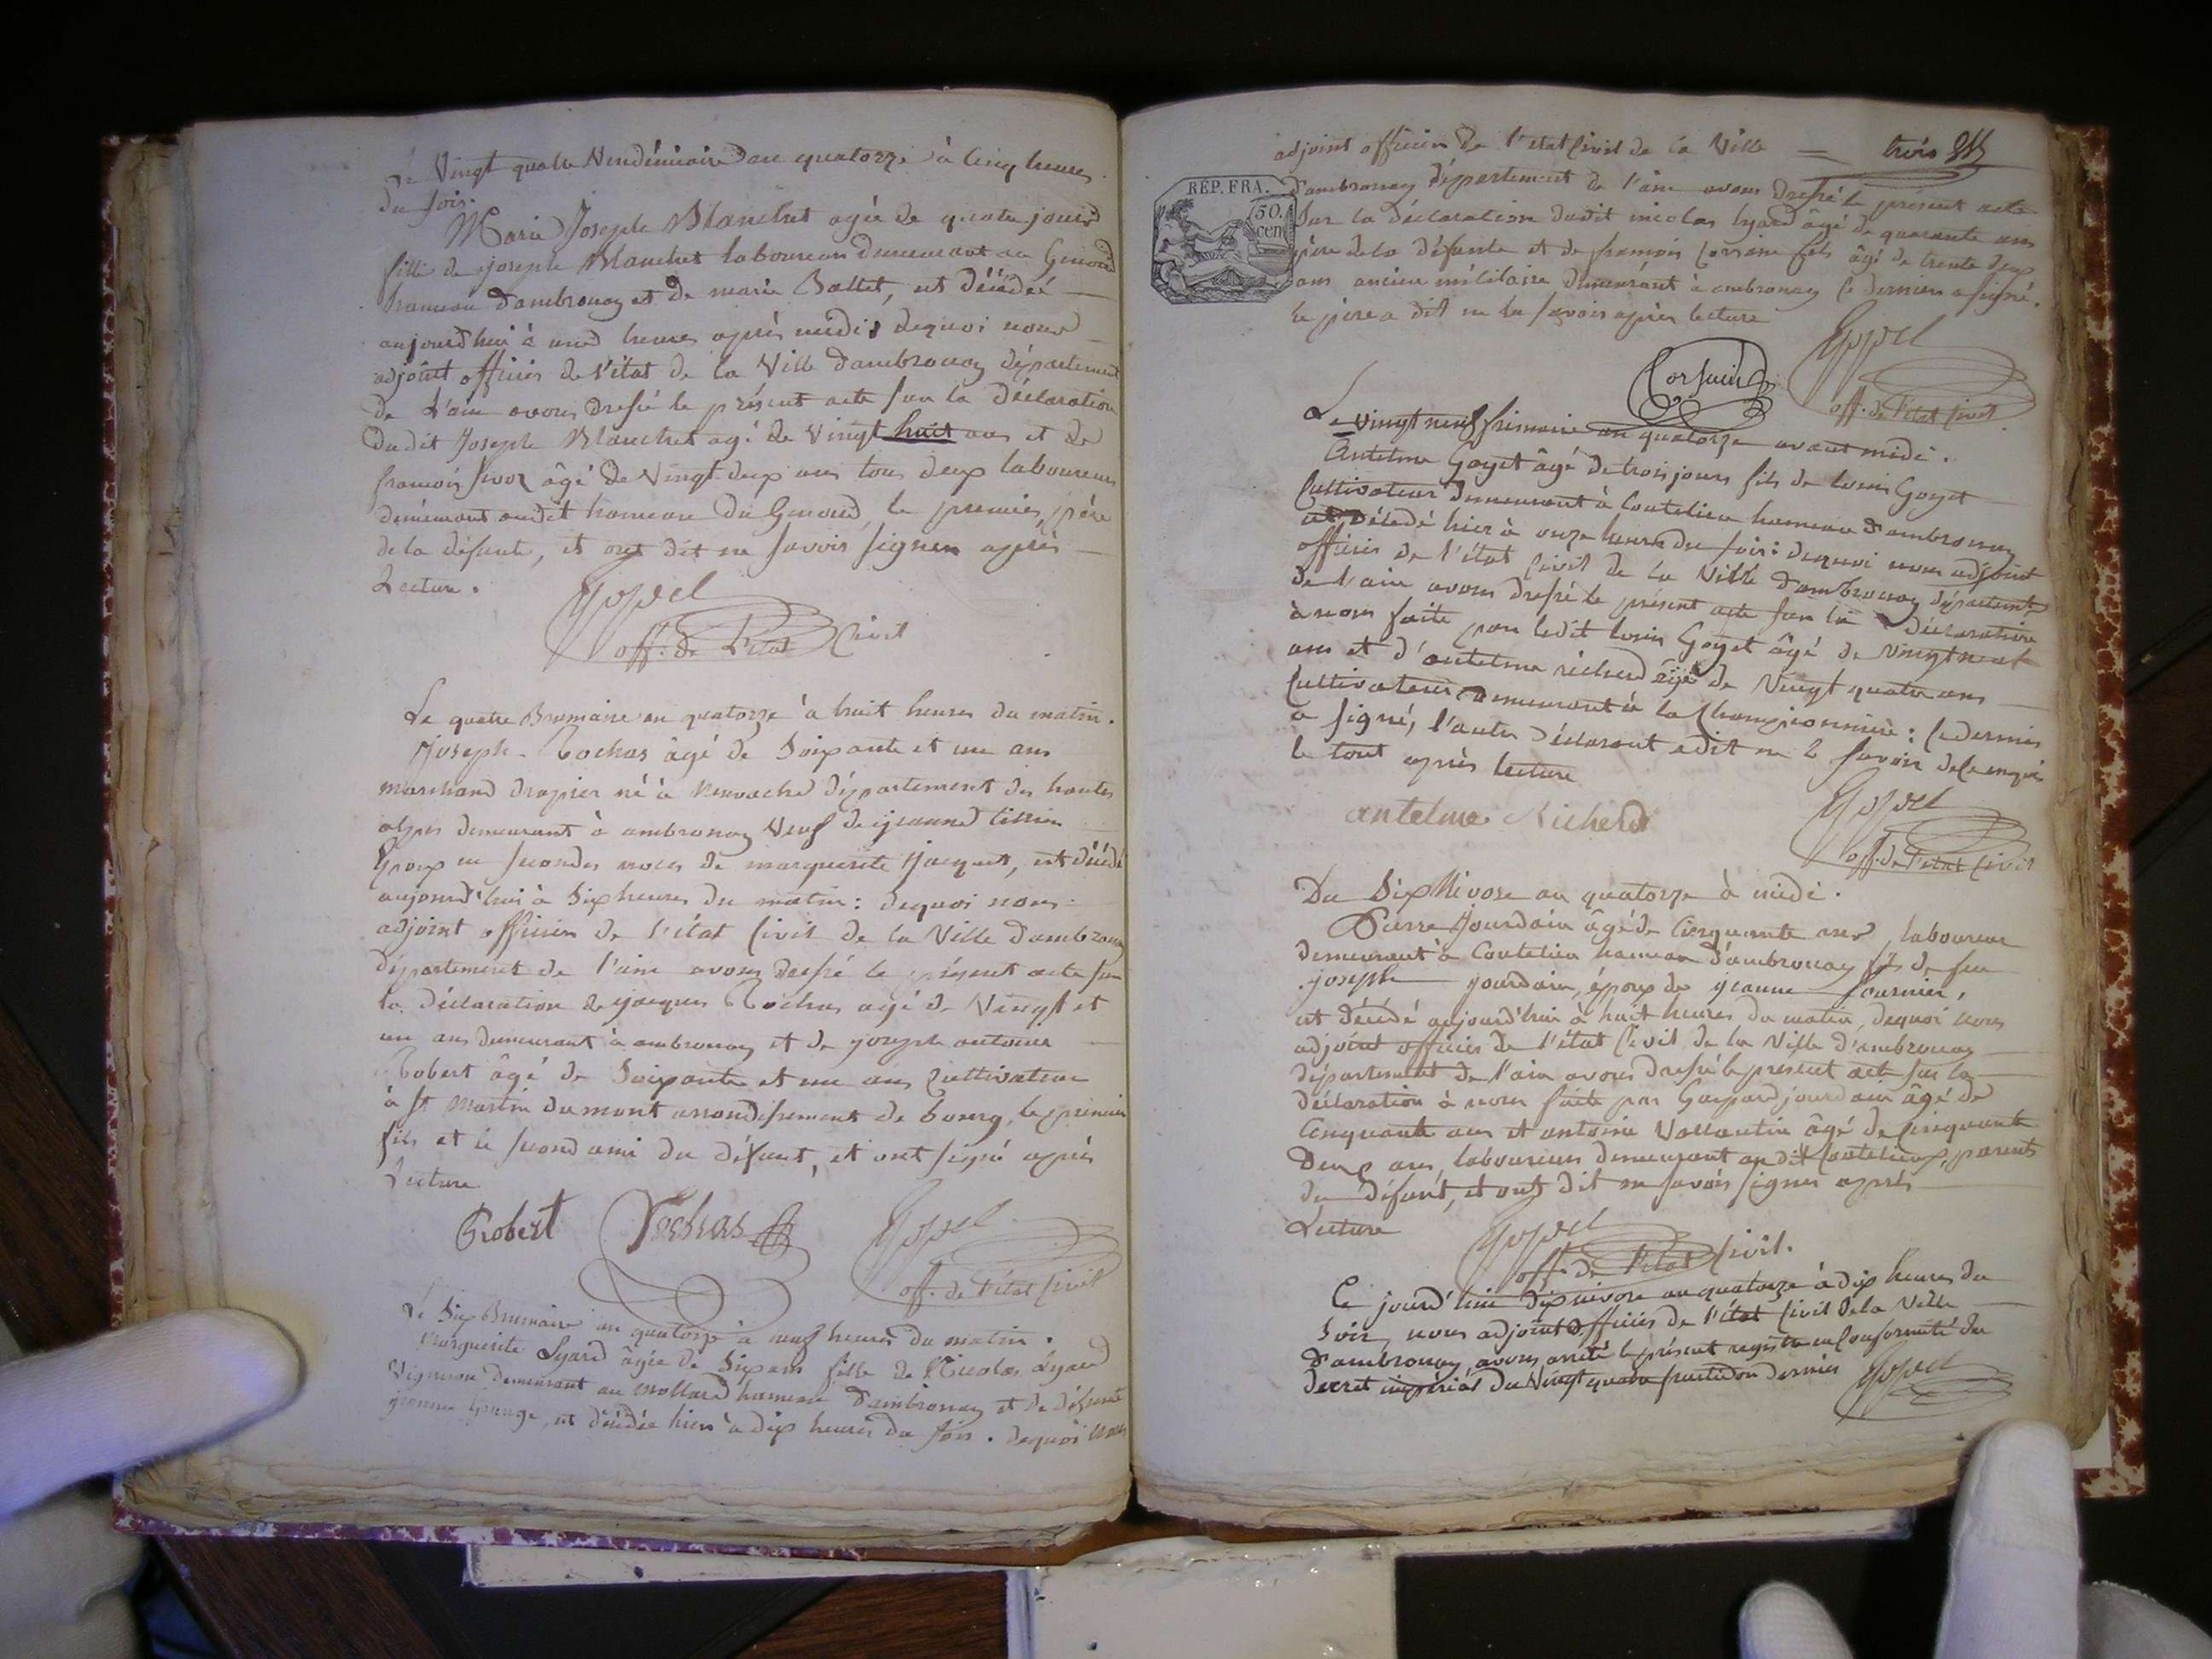 Le Vingt quatre Vendémiaire an quatorze à Cinq heures
du soir.
Marie Joseph Blanchet agée de quatre jours
fille de joseph Blanchet laboureur demeurant au Genoud
hameau d'ambronay et de marie Ballet, est décédée
aujourd'hui à une heure après midi; dequoi nous
adjoint officier de l'état de la Ville d'ambronay département
de L'ain avons dressé le présent acte sur la déclaration
dudit Joseph Blanchet agé de Vingt huit ans et de
françois âgé de Vingt deux ans tous deux laboureurs
demeurant audit hameau du Genoud, le premier, père
de la défunte, et ont dit ne savoir signer après
Lecture.
off. de l'état Civil
Le quatre Brumaire an quatorze à huit heures du matin.
Joseph Rochas âgé de Soixante et un ans
marchand drapier né à département des hautes
alpes demeurant à ambronay Veuf de jeanne
Epoux en secondes noces de marguerite Jacquet, est décédé
aujourd'hui à Six heures du matin: dequoi nous
adjoint officier de l'état Civil de la Ville d'ambronay
département de l'ain avons dressé le présent acte sur
la déclaration de jacques Rochas agé de Vingt et
un ans demeurant à ambronay et de joseph antoine
Robert âgé de Soixante et un ans Cultivateur
à St Martin du mont arrondissement de bourg, le premier
fils et le second ami du défunt, et ont signé après
Lecture
Robert Rochas
off. de l'état Civil
Le Six Brumaire an quatorze à neuf heures du matin.
Marguerite Lyard âgée de Six ans fille de Nicolas Lyard
Vigneron demeurant au mollard hameau d'ambronay et de défunte
jeanne Grange, est décédée hier à dix heures du soir. dequoi nous
adjoint officier de l'état Civil de la Ville = trois
RÉP. FRA.
50. cen
d'ambronay département de l'ain avons dressé le présent acte
Sur la déclaration dudit nicolas lyard âgé de quarante ans
père de la défunte et de françois fils âgé de trente deux
ans ancien militaire demeurant à ambronay Ce dernier a signé.
le père a dit ne le savoir après lecture
off. de l'état Civil
Le vingt neuf frimaire an quatorze avant midi.
Antelme Goyet âgé de trois jours fils de louis Goyet
Cultivateur demeurant à Coutelieu hameau d'ambronay
est décédé hier à onze heures du soir: dequoi nous adjoint
officier de l'état Civil de la Ville d'ambronay département
de l'ain avons dressé le présent acte sur la déclaration
à nous faite par ledit louis Goyet âgé de vingt neuf
ans et d'antelme richerd âgé de Vingt quatre ans
Cultivateurs demeurant à la Championnière: Ce dernier
a signé, l'autre Déclarant a dit ne savoir de ce enquis
le tout après lecture
antelme Richerd
off. de l'état Civil
Du Six Nivose an quatorze à midi.
Pierre Jourdain âgé de Cinquante ans, laboureur
demeurant à Coutelieu hameau d'ambronay fils de feu
joseph jourdain, époux de jeanne fournier,
est décédé aujourd'hui à huit heures du matin, dequoi nous
adjoint officier de l'état Civil de la Ville d'ambronay
département de l'ain avons dressé le présent acte sur la
déclaration à nous faite par Gaspard jourdain âgé de
Cinquante ans et antoine Vallantin âgé de Cinquante
Deux ans, laboureurs demeurant audit Coutelieux, parents
du défunt, et ont dit ne savoir signer après
Lecture
off. de l'état Civil.
Ce jourd'hui dix nivose an quatorze à dix heures du
Soir, nous adjoint officier de l'état Civil de la Ville
d'ambronay, avons arrêté le présent registre en Conformité du
decret impérial du Vingt quatre fructidor dernier